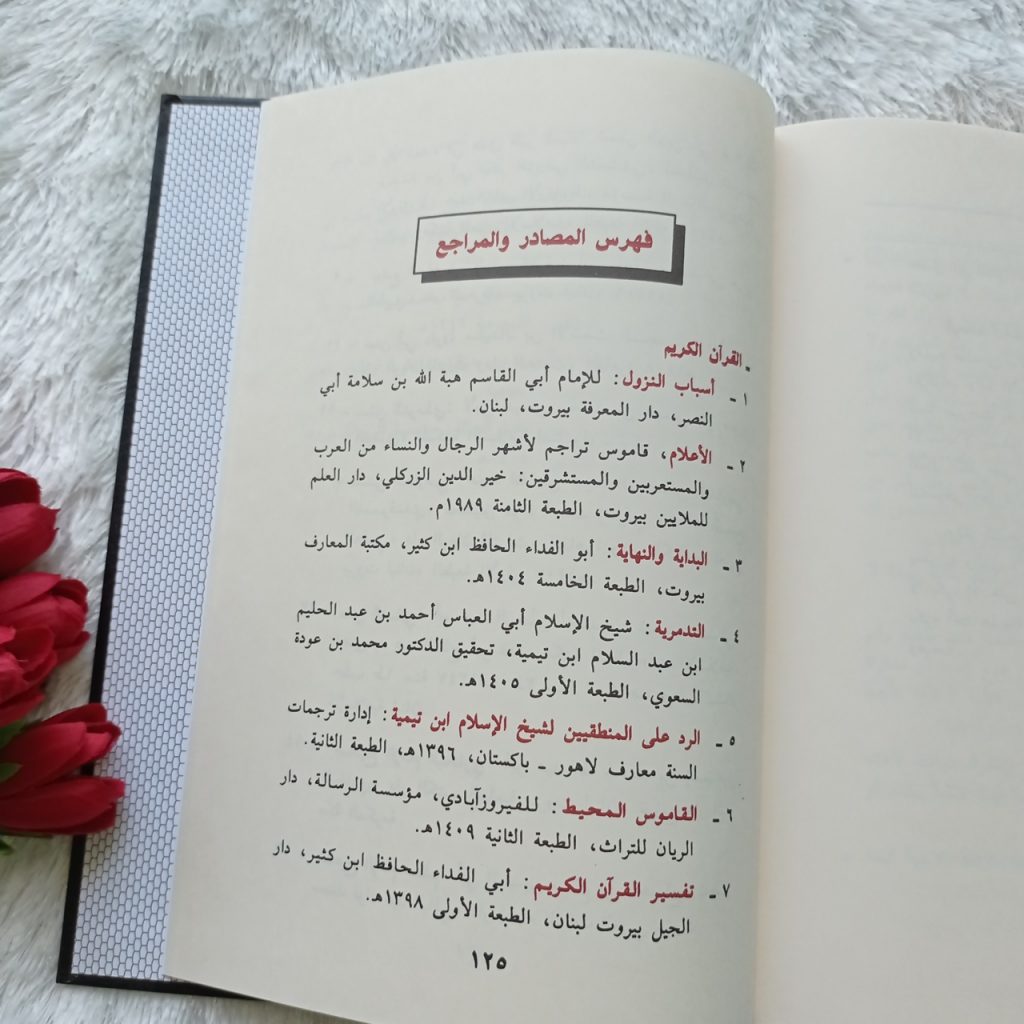 فهرس المصادر والمراجع
ـ القرآن الكريم
١ ـ أسباب النزول: للإمام أبي القاسم هبة الله بن سلامة أبي
النصر، دار المعرفة بيروت، لبنان.
٢ ـ الأعلام، قاموس تراجم لأشهر الرجال والنساء من العرب
والمستعربين والمستشرقين: خير الدين الزركلي، دار العلم
للملايين بيروت، الطبعة الثامنة ١٩٨٩م.
٣ ـ البداية والنهاية: أبو الفداء الحافظ ابن كثير، مكتبة المعارف
بيروت، الطبعة الخامسة ١٤٠٤هـ.
٤ ـ التدمرية: شيخ الإسلام أبي العباس أحمد بن عبد الحليم
ابن عبد السلام ابن تيمية، تحقيق الدكتور محمد بن عودة
السعوي، الطبعة الأولى ١٤٠٥هـ.
٥ ـ الرد على المنطقيين لشيخ الإسلام ابن تيمية: إدارة ترجمات
السنة معارف لاهور ـ باكستان، ١٣٩٦هـ، الطبعة الثانية.
٦ ـ القاموس المحيط: للفيروزآبادي، مؤسسة الرسالة، دار
الريان للتراث، الطبعة الثانية ١٤٠٩هـ.
٧ ـ تفسير القرآن الكريم: أبي الفداء الحافظ ابن كثير، دار
الجيل بيروت لبنان، الطبعة الأولى ١٣٩٨هـ.
١٢٥